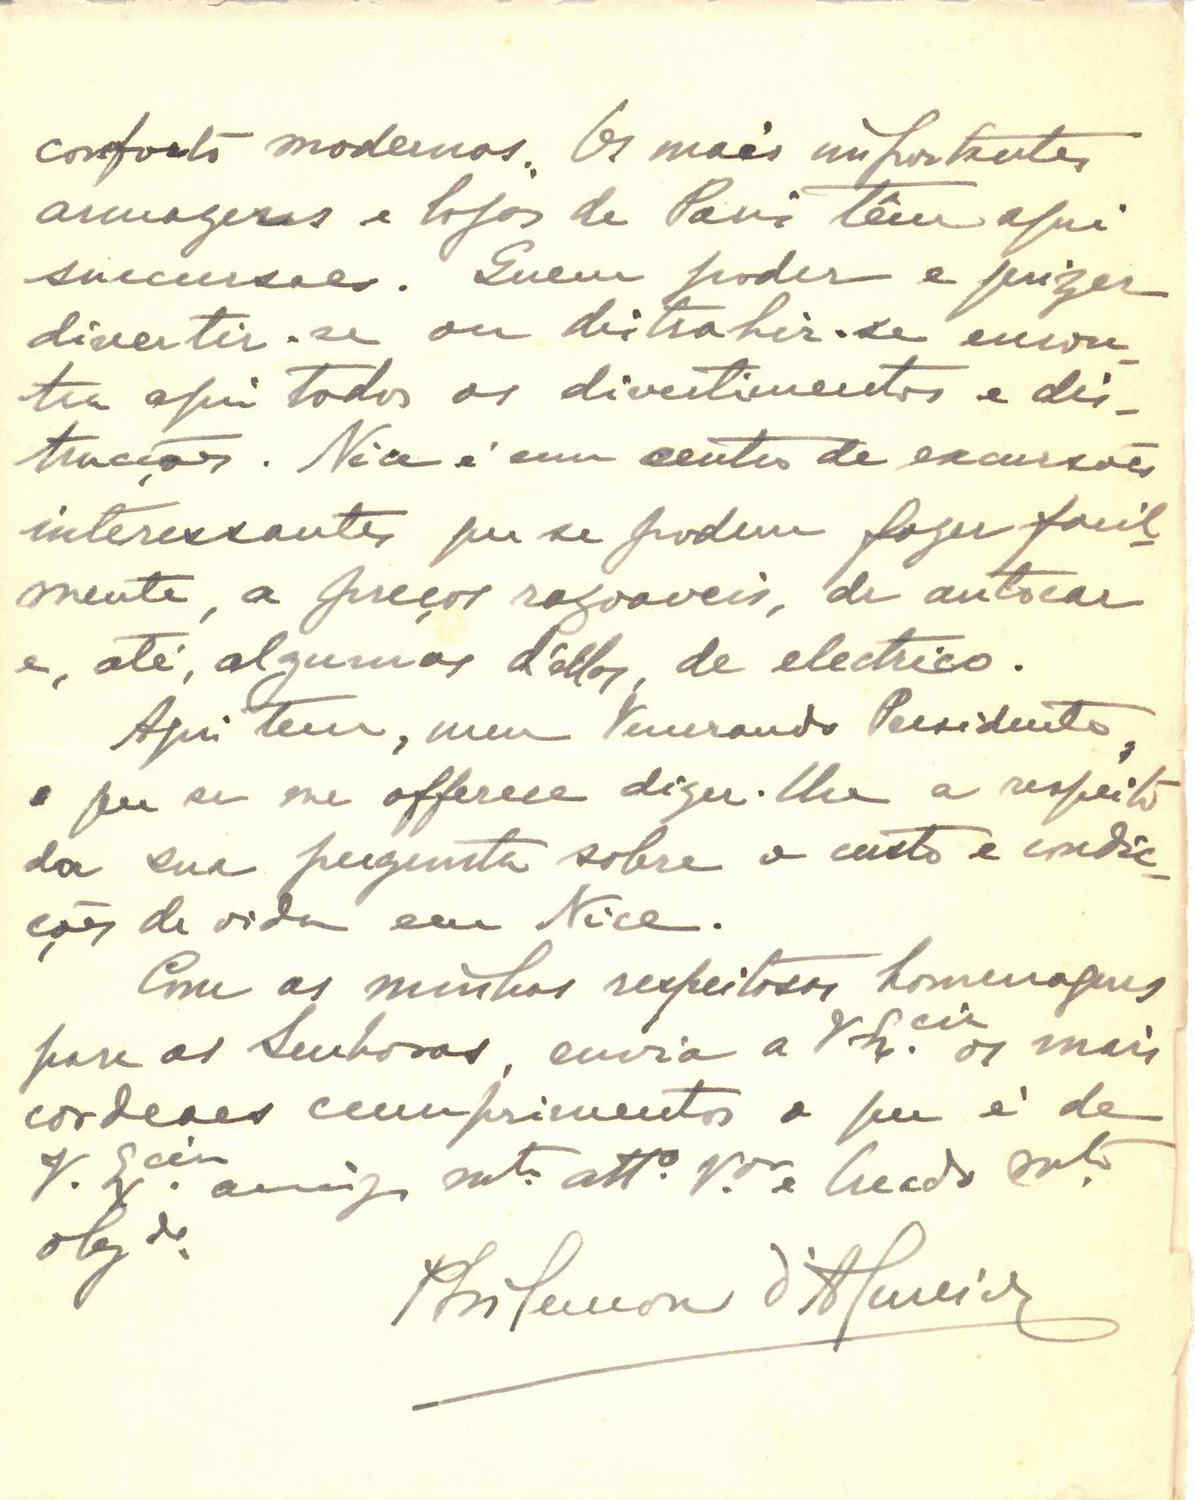 conforto modernos. Os mais importantes
armagens e lojas de Paris têm aqui
succursaes. Quem poder e quizer
divertir-se ou distrahir-se encon-
tra aqui todos os divertimentos e dis-
tracções. Nice é um centro de excursões
interessantes que se podem fazer facil-
mente, a preços razoaveis, de autocar
e, até, algumas d'ellas, de electrico.
Aqui tem, meu Venerando Presidente,
o que se me offerece dizer-lhe a respeito
da sua pergunta sobre o custo e condic-
ções de vida em Nice.
Com as minhas respeitosas homenagens
para as Senhoras, envia a V. Ex.cia os mais
cordeaes cumprimentos o que é de
V. Ex.cia amigo mt.o att.o V.or e Creado mt.o
obg.do.
Philemon d'Almeida